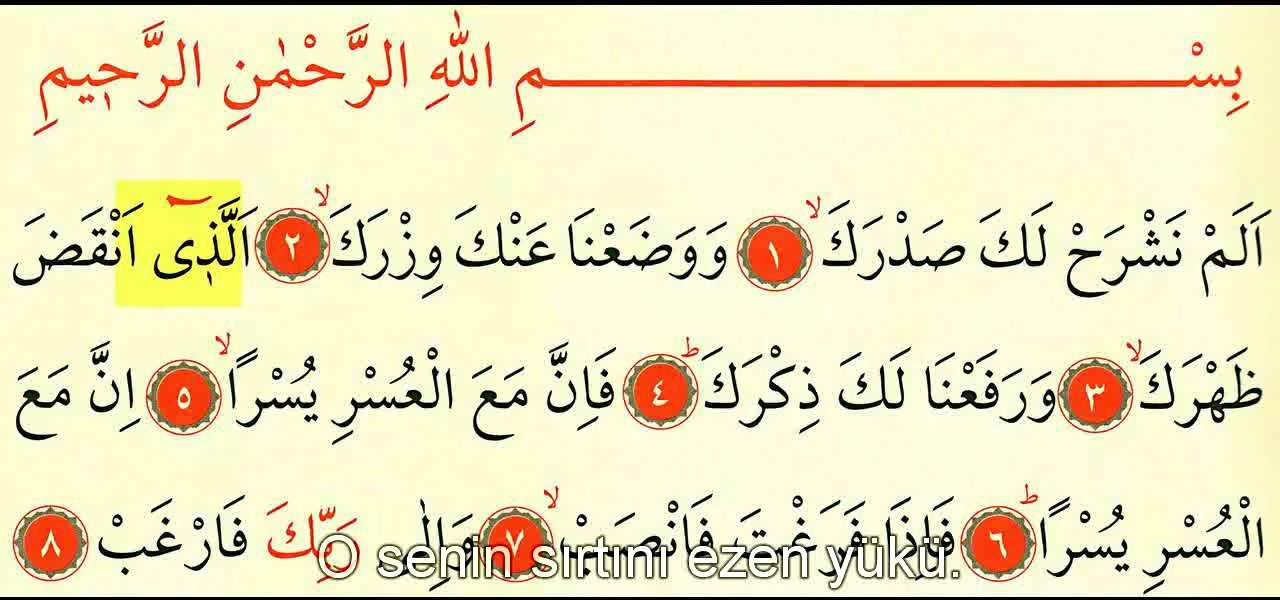 بِسْمِ اللّٰهِ الرَّحْمٰنِ الرَّح۪يمِ
اَلَمْ نَشْرَحْ لَكَ صَدْرَكَۙ ﴿١﴾ وَوَضَعْنَا عَنْكَ وِزْرَكَۙ ﴿٢﴾ اَلَّذ۪ٓى اَنْقَضَ
ظَهْرَكَۙ ﴿٣﴾ وَرَفَعْنَا لَكَ ذِكْرَكَۜ ﴿٤﴾ فَاِنَّ مَعَ الْعُسْرِ يُسْرًاۙ ﴿٥﴾ اِنَّ مَعَ
الْعُسْرِ يُسْرًاۜ ﴿٦﴾ فَاِذَا فَرَغْتَ فَانْصَبْۙ ﴿٧﴾ وَاِلٰى رَبِّكَ فَارْغَبْ ﴿٨﴾
O senin sırtını ezen yükü.